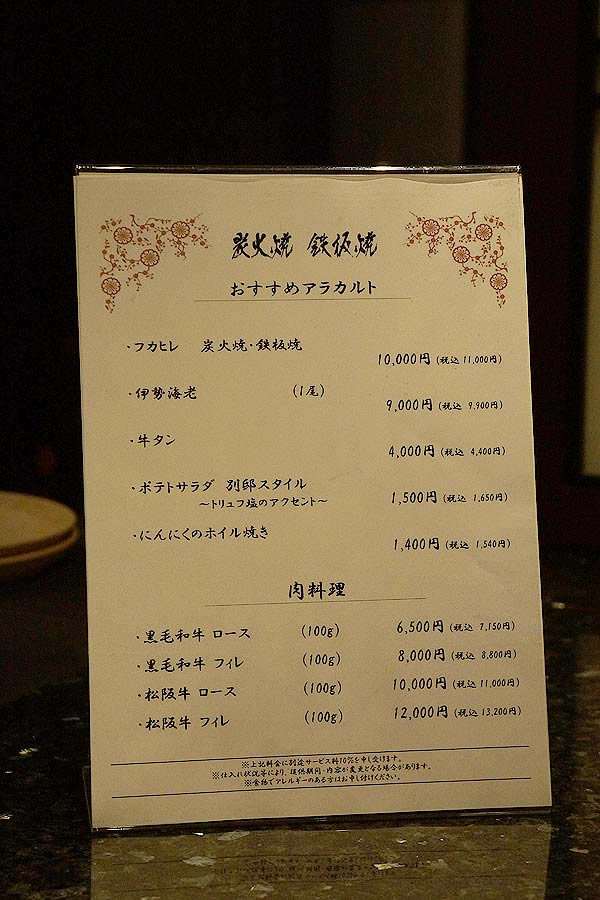 炭火焼 鉄板焼
おすすめアラカルト
・フカヒレ 炭火焼・鉄板焼
10,000円 (税込 11,000円)
・伊勢海老 (1尾)
9,000円 (税込 9,900円)
・牛タン
4,000円 (税込 4,400円)
・ポテトサラダ 別邸スタイル
～トリュフ塩のアクセント～
1,500円 (税込 1,650円)
・にんにくのホイル焼き
1,400円 (税込 1,540円)
肉料理
・黒毛和牛 ロース (100g) 6,500円 (税込 7,150円)
・黒毛和牛 フィレ (100g) 8,000円 (税込 8,800円)
・松阪牛 ロース (100g) 10,000円 (税込 11,000円)
・松阪牛 フィレ (100g) 12,000円 (税込 13,200円)
※上記料金に別途サービス料10%を申し受けます。
※仕入れ状況等により、提供期間・内容が変更となる場合があります。
※食物でアレルギーのある方はお申し付けください。